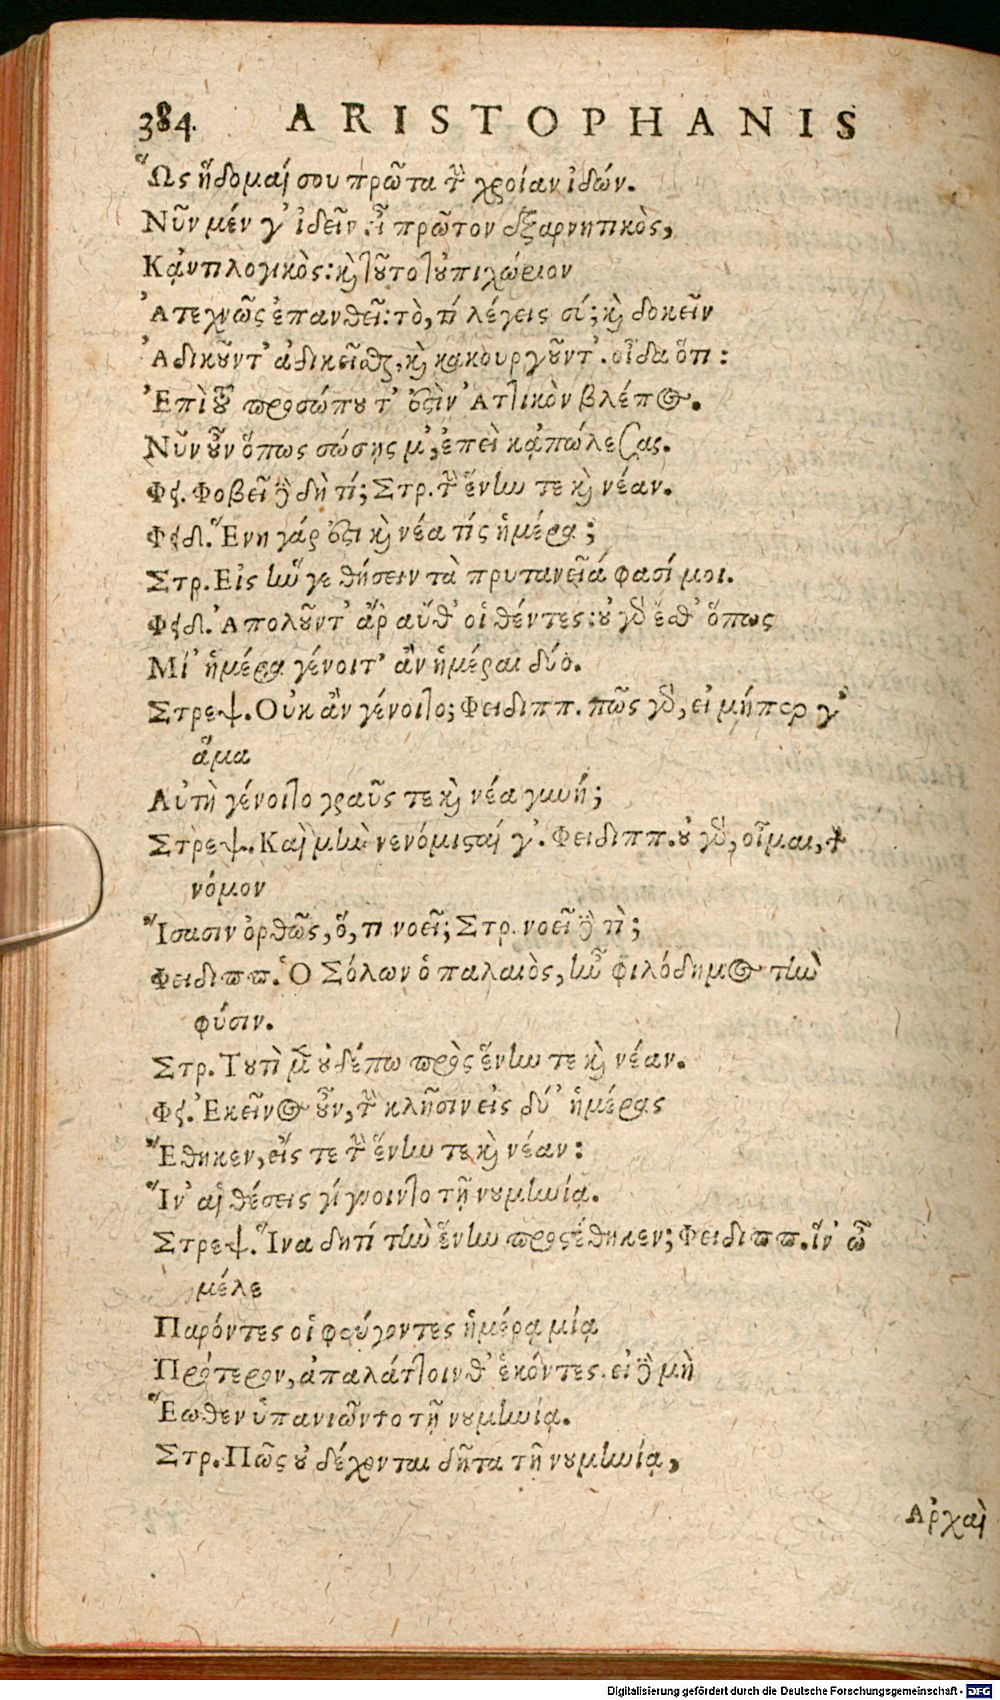 384. ARISTOPHANIS
Ὣς ἥδομαί σου πρῶτα τὴν χροίαν ἰδών.
Νῦν μέν γ' ἰδεῖν εἶ πρῶτον ἐξαρνητικὸς,
Κἀντιλογικὸς: καὶ τοῦτο τοὐπιχώριον
Ἀτεχνῶς ἐπανθεῖ: τὸ, τί λέγεις σί; καὶ δοκεῖν
Ἀδικοῦντ' ἀδικεῖσθαι, καὶ κακουργοῦντ'. οἶδα ὅτι:
Ἐπὶ τοῦ προσώπου τ' ἐστὶν Ἀττικὸν βλέπος.
Νῦν οὖν ὅπως σώσῃς μ', ἐπεὶ κἀπώλεσας.
Φς. Φοβεῖ δὲ δὴ τί; Στρ. τὴν ἕνην τε καὶ νέαν.
Φςδ. Ἕνη γάρ ἐστι καὶ νέα τίς ἡμέρα;
Στρ. Εἰς ἥν γε θήσειν τὰ πρυτανεῖά φασί μοι.
Φςδ. Ἀπολοῦντ' ἄρ αὔθ' οἱ θέντες: οὐ γὰρ ἔσθ' ὅπως
Μί' ἡμέρα γένοιτ' ἂν ἡμέραι δύο.
Στρεψ. Οὐκ ἂν γένοιτο; Φειδιππ. πῶς γὰρ, εἰ μήπερ γ'
ἅμα
Αὐτὴ γένοιτο γραῦς τε καὶ νέα γυνή;
Στρεψ. Καὶ μὴν νενόμισταί γ'. Φειδιππ. οὐ γὰρ, οἶμαι, τὸν
νόμον
Ἴσασιν ὀρθῶς, ὅ, τι νοεῖ; Στρ. νοεῖ δὲ τὶ;
Φειδιππ. Ὁ Σόλων ὁ παλαιὸς, ἦν φιλόδημος τὴν
φύσιν.
Στρ. Τουτὶ μὲν οὐδέπω πρὸς ἕνην τε καὶ νέαν.
Φς. Ἐκεῖνος οὖν, τὴν κλῆσιν εἰς δύ' ἡμέρας
Ἔθηκεν, εἴς τε τὴν ἕνην τε καὶ νέαν:
Ἵν' αἱ θέσεις γίγνοιντο τῇ νουμηνίᾳ.
Στρεψ. Ἵνα δητί τὴν ἕνην προςέθηκεν; Φειδιππ. ἵν' ὦ
μέλε
Παρόντες οἱ φεύγοντες ἡμέρᾳ μίᾳ
Πρότερον, ἀπαλάττοινθ' ἑκόντες. εἰ δὲ μὴ
Ἕωθεν ὑπανιῶντο τῇ νουμηνίᾳ.
Στρ. Πῶς οὐ δέχονται δῆτα τῇ νουμηνίᾳ,
Ἀρχαὶ
Digitalisierung gefördert durch die Deutsche Forschungsgemeinschaft - DFG